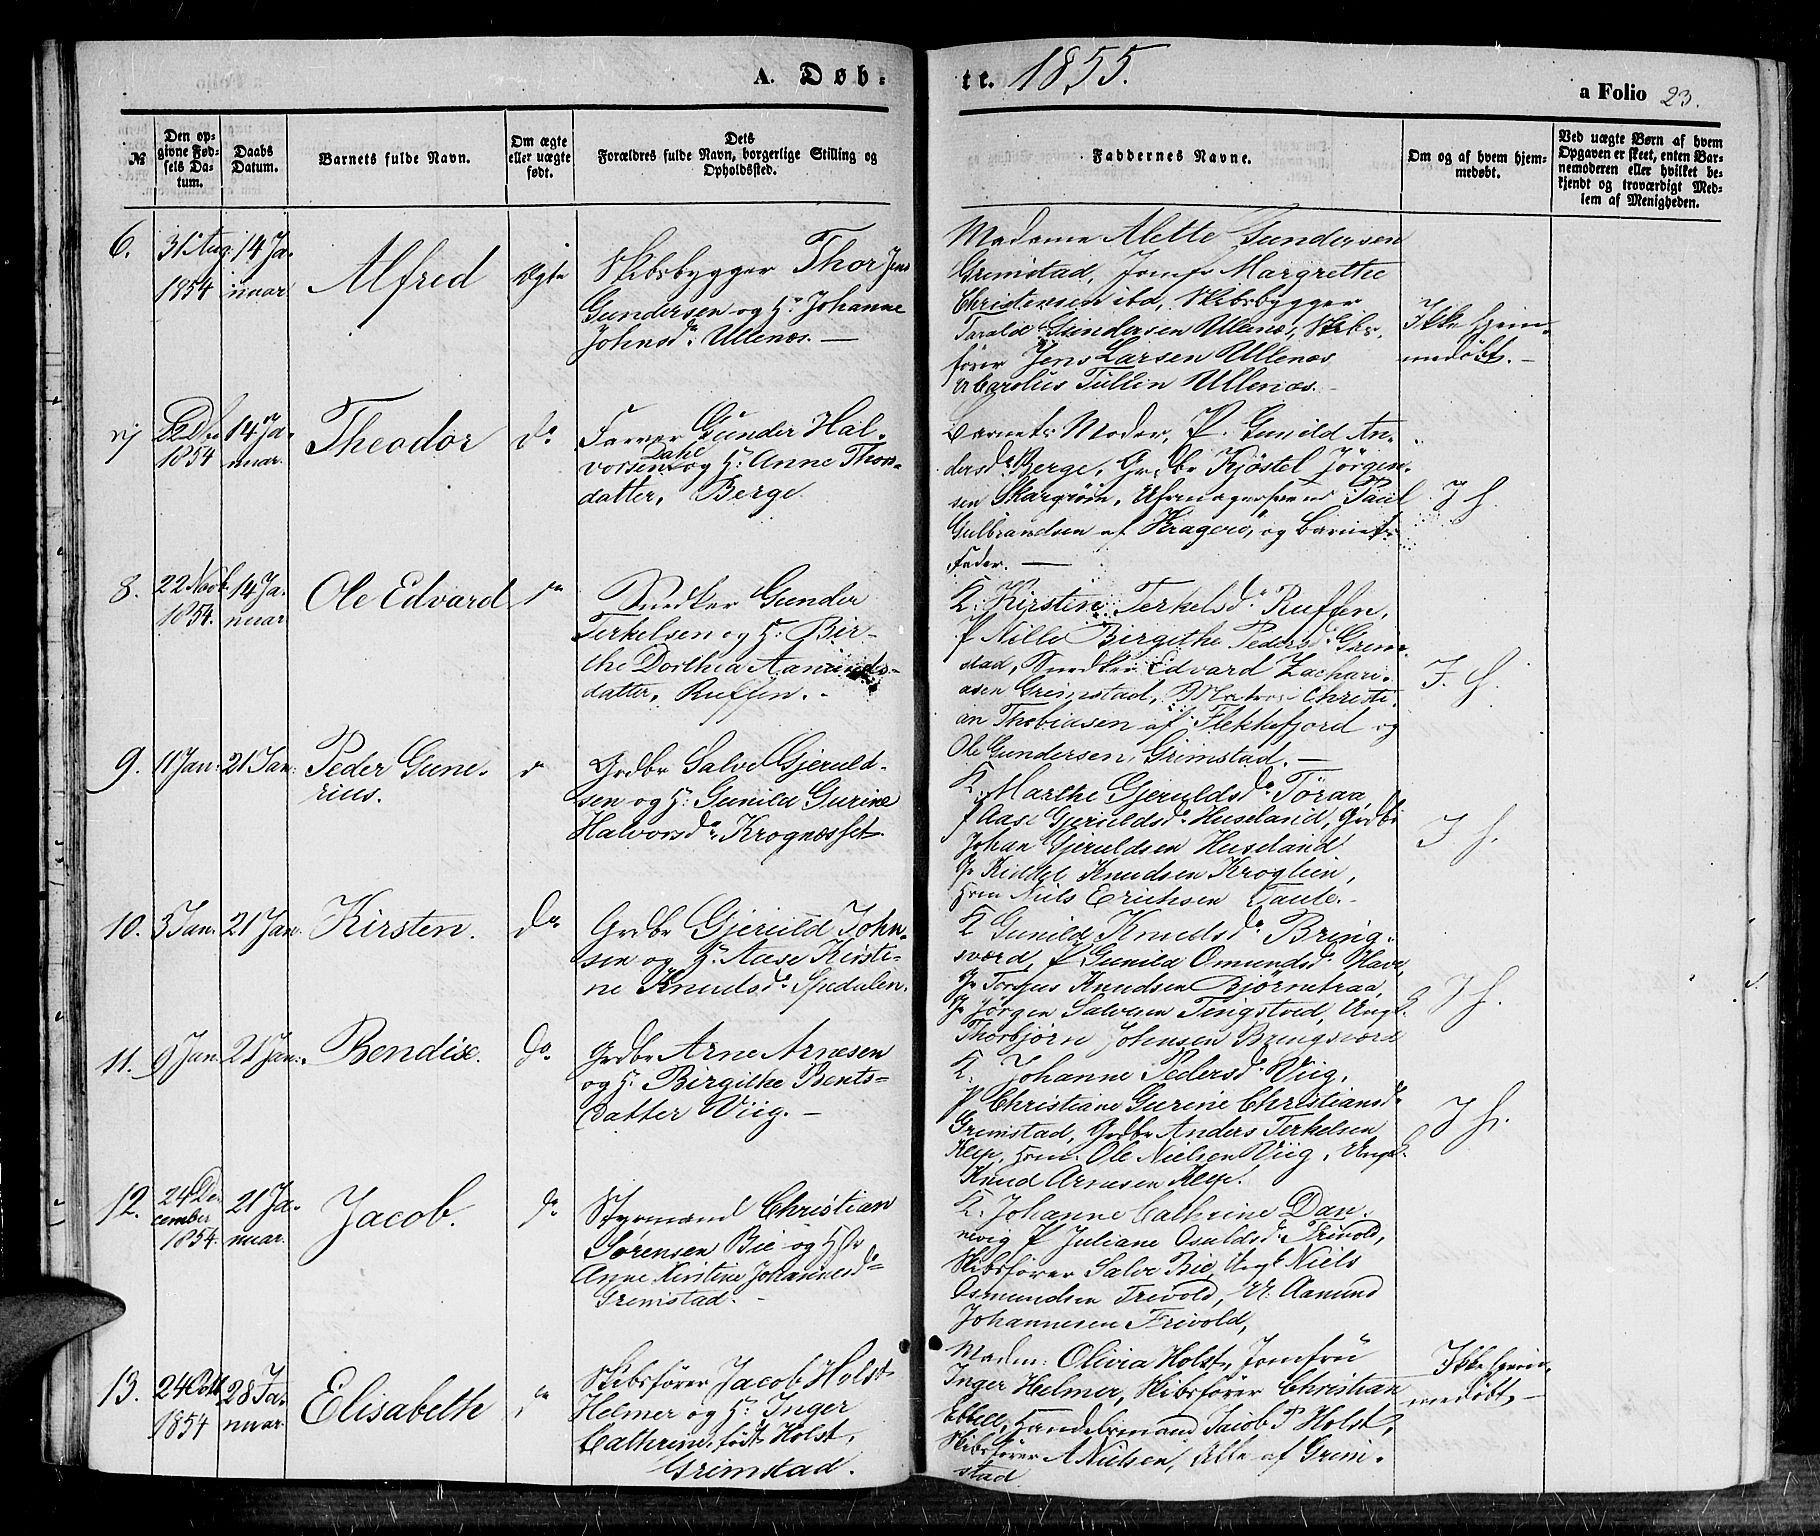 A. Døb-
te. 1855.
a Folio 23.
№
Den op-
givne Fød-
sels Da-
tum.
Daabs
Datum.
Barnets fulde Navn.
Om ægte
eller uægte
født.
Dets
Forældres fulde Navn, borgerlige Stilling og
Opholdssted.
Faddernes Navne.
Om og af hvem hjem-
medøbt.
Ved uægte Børn af hvem
Opgaven er skeet, enten Bar-
nemoderen eller hvilket be-
kjendt og troværdigt Med-
lem af Menigheden.
6.
31 Aug.
1854
14 Ja-
nuar
Alfred
Ægte
Skibsbygger Thor Jens
Gundersen og H. Johanne
Johnsd. Ullenæs. —
Madame Alette Gundersen
Grimstad, Jomfr Margrethe
Christensen ibd, Skibsbygger
Taralde Gundersen Ullenæs, Skibs-
fører Jens Larsen Ullenæs
Carolus Tullin Ullenæs.
Ikke hjem-
medøbt. —
1854
14 Ja-
nuar.
Theodor
do
Farver Gunder Hal-
vorsen Dahl og H: Anne Thors-
datter, Berge.
Barnets Moder, P. Gunild An-
dersd. Berge, Grdbr Kjøstel Jørgen-
sen Skargrøin, Paul
Gulbrandsen af Kragerø, og Barnets
Fader. —
I h.
8.
22 Novb.
1854.
14 Ja-
nuar
Ole Edvard
do
Snedker Gunder
Terkelsen og H: Bir-
the Dorthea Aamunds-
datter, Ruffen. -
K: Kirsten Terkelsd. Ruffen,
P Nille Birgithe Pedersd. Grim-
stad, Snedker Edvard Zachari-
asen Grimstad, Christi-
an Thobiasen af Flekkefjord og
Ole Gundersen, Grimstad. —
I. h.
9.
11 Jan:
21 Jan:
Peder Gune-
rius.
d
Grdbr Salve Gjeruld-
sen og H: Gunild Gurine
Halvorsd. Krognæsset.
K. Marthe Gjeruldsd. Töraa
P Aase Gjeruldsd. Huseland, Grdbr
Johan Gjeruldsen Huseland
Gr Kiddel Knudsen Kroglien,
Hsm Niels Erichsen Taule.
I h.
10.
3 Jan.
21 Jan.
Kirsten.
do
Grdbr Gjeruld John-
sen og H. Aase Kirsti-
ne Knudsd.
K Gunild Knudsd. Bring-
sværd, P Gunild Omundsd. Have,
Gr Torjus Knudsen Bjørnetraa,
Gr Jörgen Salvesen Tingstved, Ungk.
Thorbjörn Johnsen Bringsværd
I h.
11.
9 Jan.
21 Jan:
Bendise.
do
Grdbr Arne Arnesen
og H. Birgithe Bents-
datter Viig. —
K: Johanne Pedersd. Viig,
P Christiane Gurine Christiansd.
Grimstad, Grdbr Anders Terkelsen
Hsm. Ole Nielsen Viig, Ungk.
Knud Arnesen
I h.
12.
24 De-
cember
1854.
21 Ja-
nuar.
Jacob.
do
Styrmand Christian
Sørensen Bie og Hstr
Anne Kirstine Johannesd.
Grimstad. -
K: Johanne Cathrine Dan-
nevig P Juliane Osuldsd. Frivold,
Skibsfører Salve Bie, Ungk Niels
Osmundsen Frivold, U. Aamund
Johannesen Frivold,
13.
24 Octb
1854
28 Ja-
nuar.
Elisabeth
do
Skibsfører Jacob Holst
Helmer og H: Inger
Cathrine, født Holst,
Grimstad.
Madm: Olivia Holst, Jomfru
Inger Helmer, Skibsfører Christian
Ebbell, Handelsmand Jacob P Holst,
Skibsfører A Nielsen, Alle af Grim-
stad
Ikke hjem-
medøbt, —